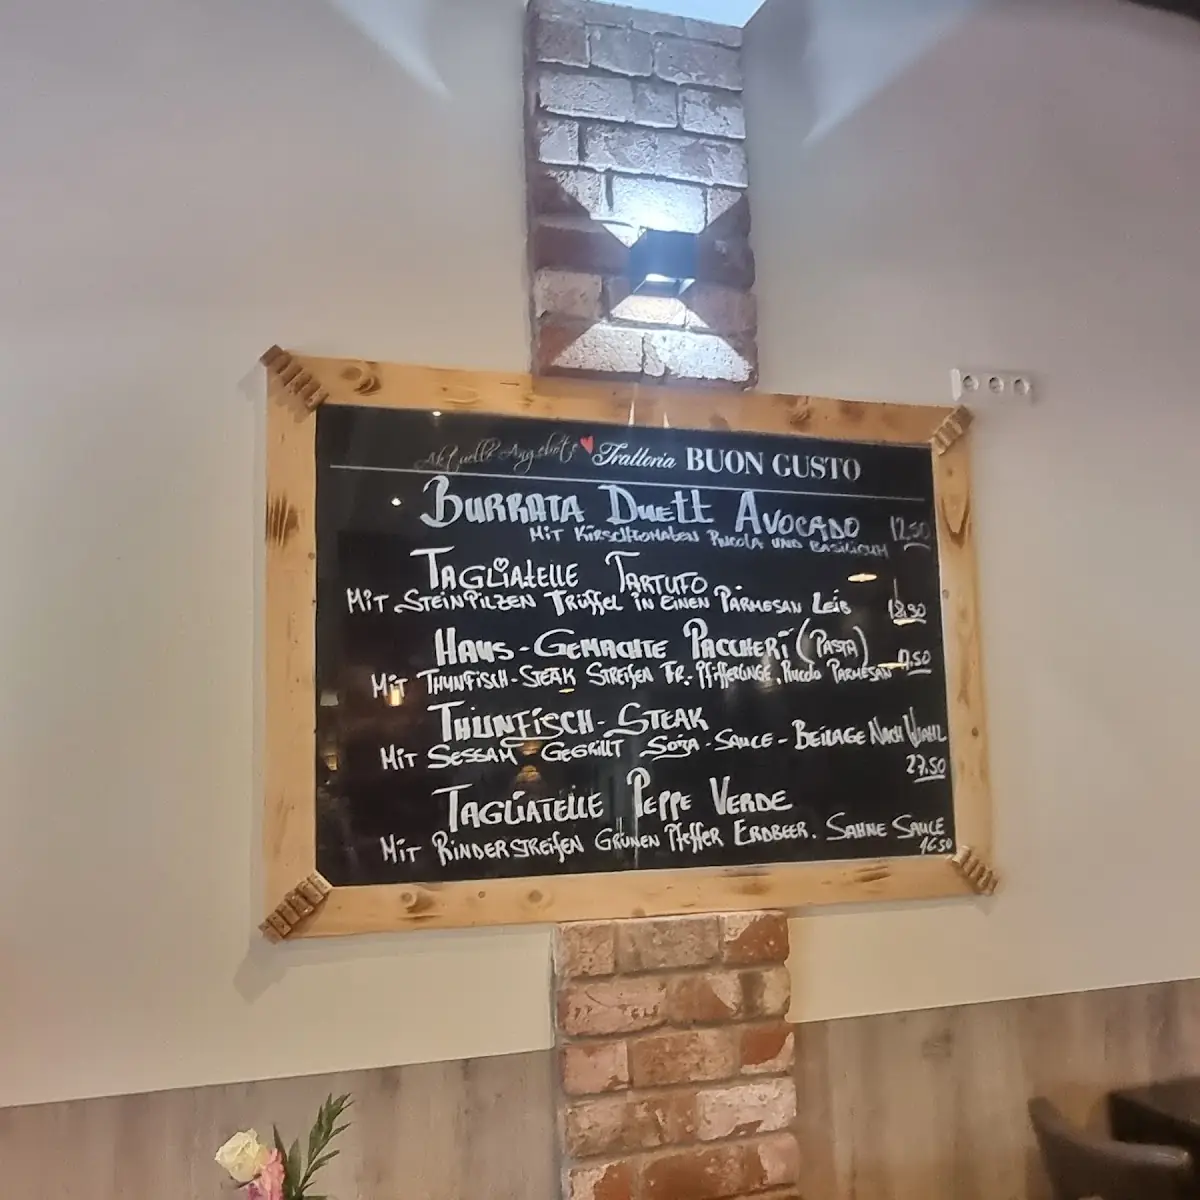 Aktuelle Angebote Trattoria BUON GUSTO
BURRATA DUETT AVOCADO 12.50
MIT KIRSCHTOMATEN RUCOLA UND BASILICUM
TAGLIATELLE TARTUFO
MIT STEINPILZEN TRÜFFEL IN EINEN PARMESAN LEIB 18.90
HAUS-GEMACHTE PACCHERI (PASTA)
MIT THUNFISCH-STEAK STREIFEN FR.-PFIFFERLINGE, RUCOLA PARMESAN
THUNFISCH-STEAK
MIT SESSAM GEGRILLT SOJA-SAUCE-BEILAGE NACH WAHL
27.50
TAGLIATELLE PEPPE VERDE
MIT RINDERSTREIFEN GRÜNEN PFEFFER ERDBEER. SAHNE SAUCE
16.50